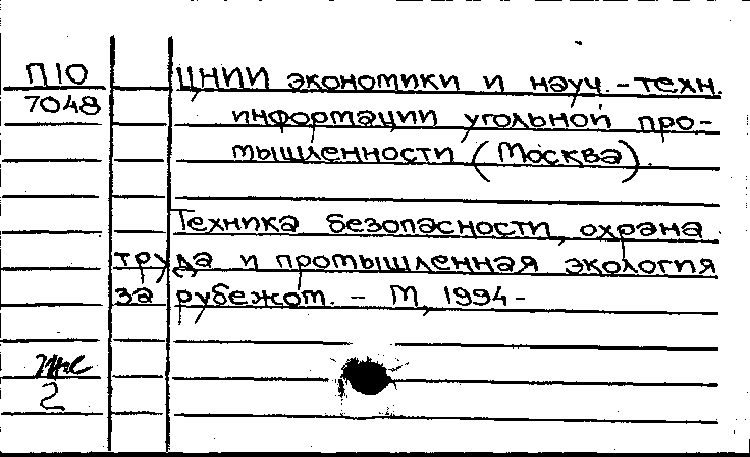 П10
7048
ЦНИИ экономики и науч.-техн.
информации угольной про-
мышленности (Москва).
Техника безопасности, охрана
труда и промышленная экология
за рубежом. - М, 1994 -
2